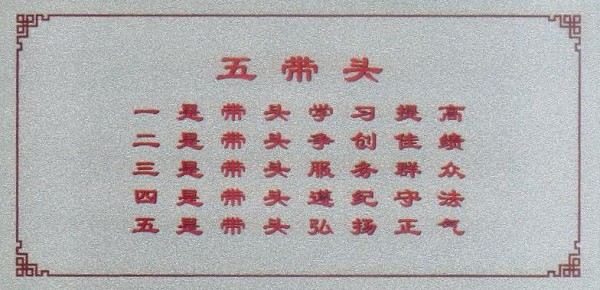 五带头
一是带头学习提高
二是带头争创佳绩
三是带头服务群众
四是带头遵纪守法
五是带头弘扬正气